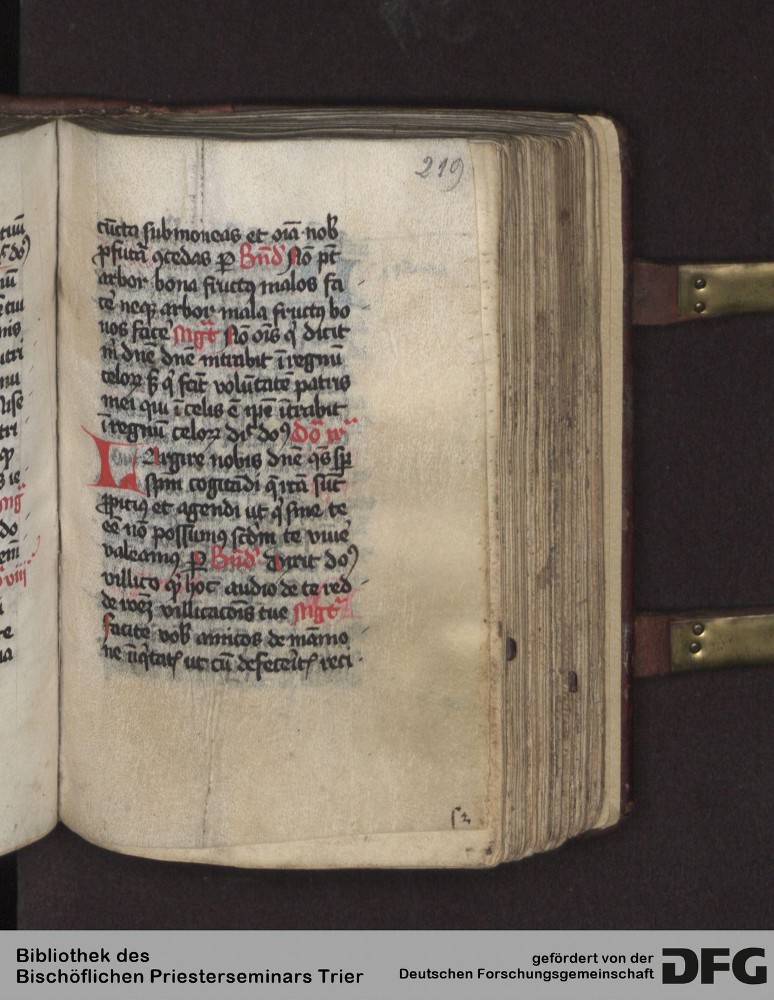 219
cūcta submoueas et oīa nob̄
ꝓfutā ꝯcedas ꝑ Bn̄d' Nō pt̄
arbor bona fructꝯ malos fa
cē neqꝫ arbor mala fructꝯ bo
nos facē Mgt̄ Nō oīs qͥ dicit
m̄ dn̄e dn̄e intrabit ī regnū
celoꝝ sꝫ qͥ fac̄ volūtatē patris
mei qui ī celis ē ip̄e ītrabit
ī regnū celoꝝ dic̄ doꝰ
Largire nobis dn̄e qs̄ sp̄
sp̄m cogitādi q̄ rctā sūt
ꝓpiciꝯ et agendi ut qͥ sine te
eē nō possumꝯ scd̄m te viuē
valeamꝯ ꝑ Bn̄d' Dixit doꝰ
villico qͥ hoc audio de te red
de rōeꝫ villicacōis tue Mgt̄
facite vob̄ amicos de māmo
ne īiqͥtatꝭ ut cū defecerītꝭ reci
Bibliothek des
Bischöflichen Priesterseminars Trier
gefördert von der
Deutschen Forschungsgemeinschaft
DFG